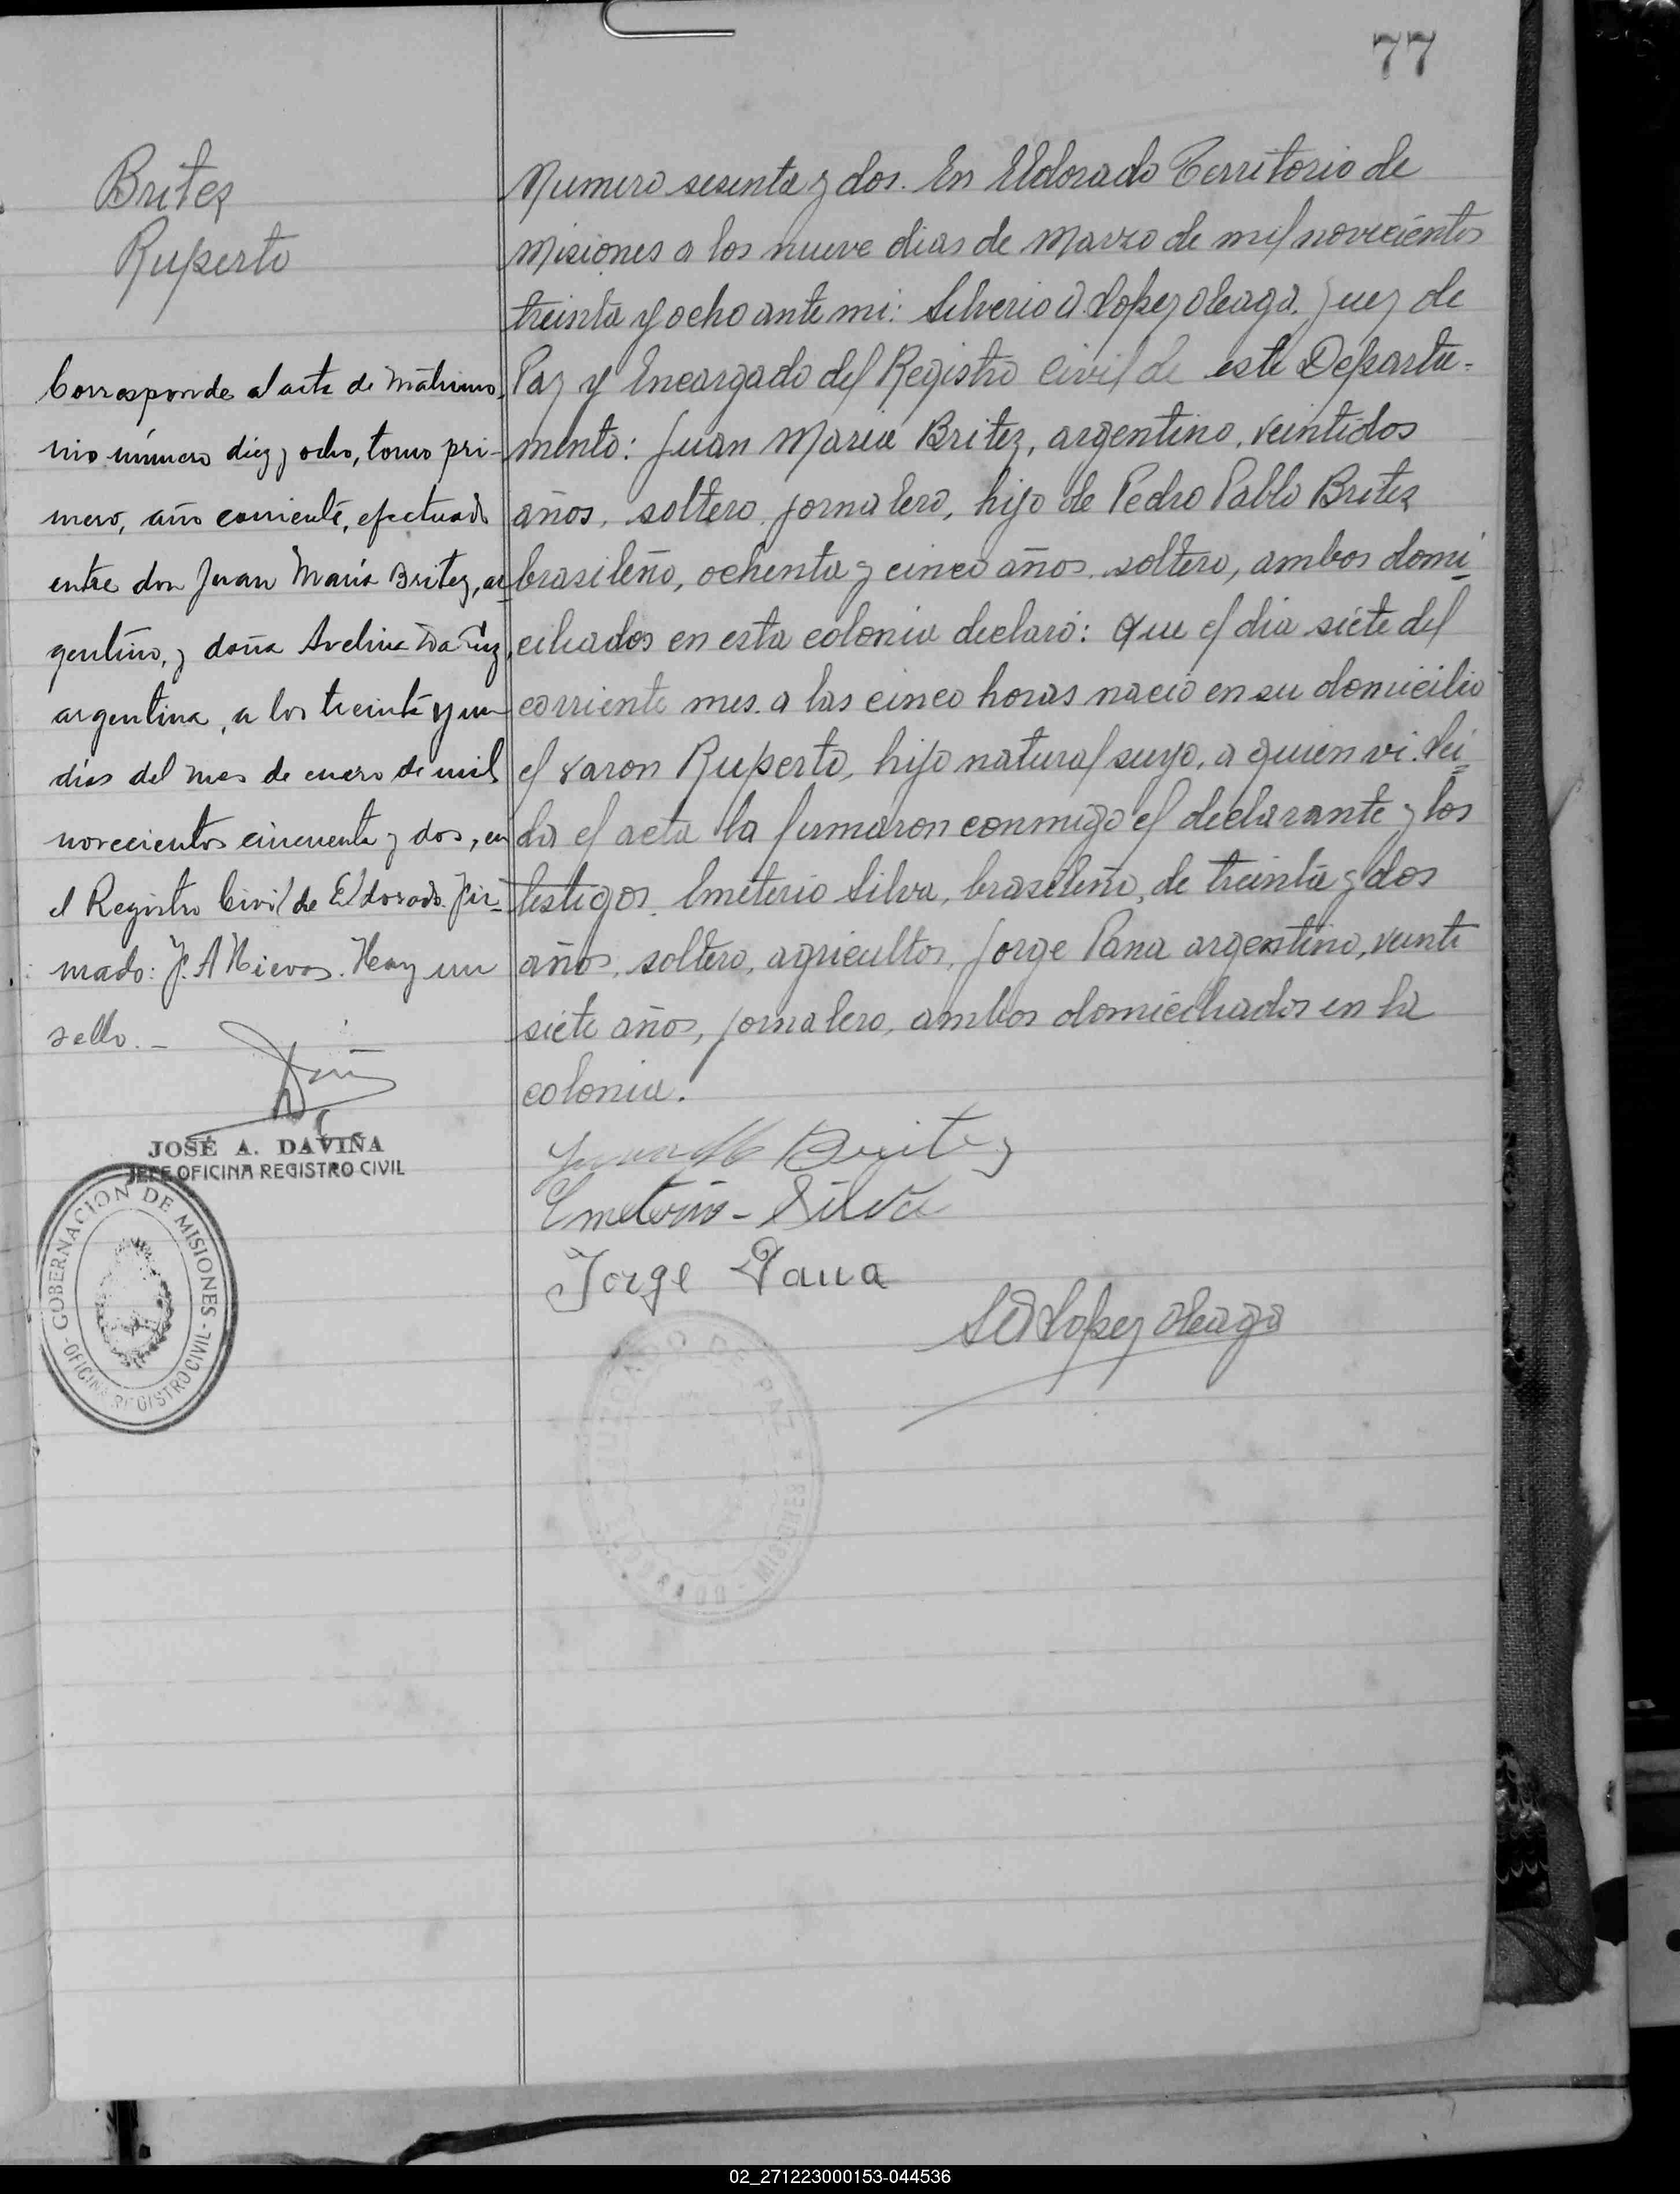 77
Britez
Ruperto
Numero sesenta y dos. En Eldorado Territorio de
Misiones a los nueve dias de Marzo de mil novecientos
treinta y ocho ante mi: Silverio A. Lopez Oleaga. Juez de
Paz y Encargado del Registro Civil de este Departa-
mento: Juan Maria Britez, argentino, veintidos
años, soltero, jornalero, hijo de Pedro Pablo Britez
brasileño, ochenta y cinco años, soltero, ambos domi
ciliados en esta colonia declaró: Que el dia siete del
corriente mes. a las cinco horas nació en su domicilio
el varon Ruperto, hijo natural suyo, a quien vi. Leí
da el acta la firmaron conmigo el declarante y los
testigos. Emeterio Silva, brasileño, de treinta y dos
años, soltero, agricultor, Jorge Pana argentino, veinti
siete años, jornalero, ambos domiciliados en la
colonia.
Juan M Britez
Emeterio - Silva
Jorge Pana
S A Lopez Oleaga
Corresponde al acta de Matrimo-
nio número diez y ocho, tomo pri-
mero, año corriente, efectuado
entre don Juan María Britez, ar
gentino, y doña Avelina Da
argentina, a los treinta y un
días del mes de enero de mil
novecientos cincuenta y dos, en
el Registro Civil de Eldorado. Fir-
mado: J. A Nieves. Hay un
sello.-
JOSÉ A. DAVIÑA
JEFE OFICINA REGISTRO CIVIL
GOBERNACION DE MISIONES - OFICINA REGISTRO CIVIL -
JUZGADO DE PAZ * MISIONES - ELDORADO
02_271223000153-044536